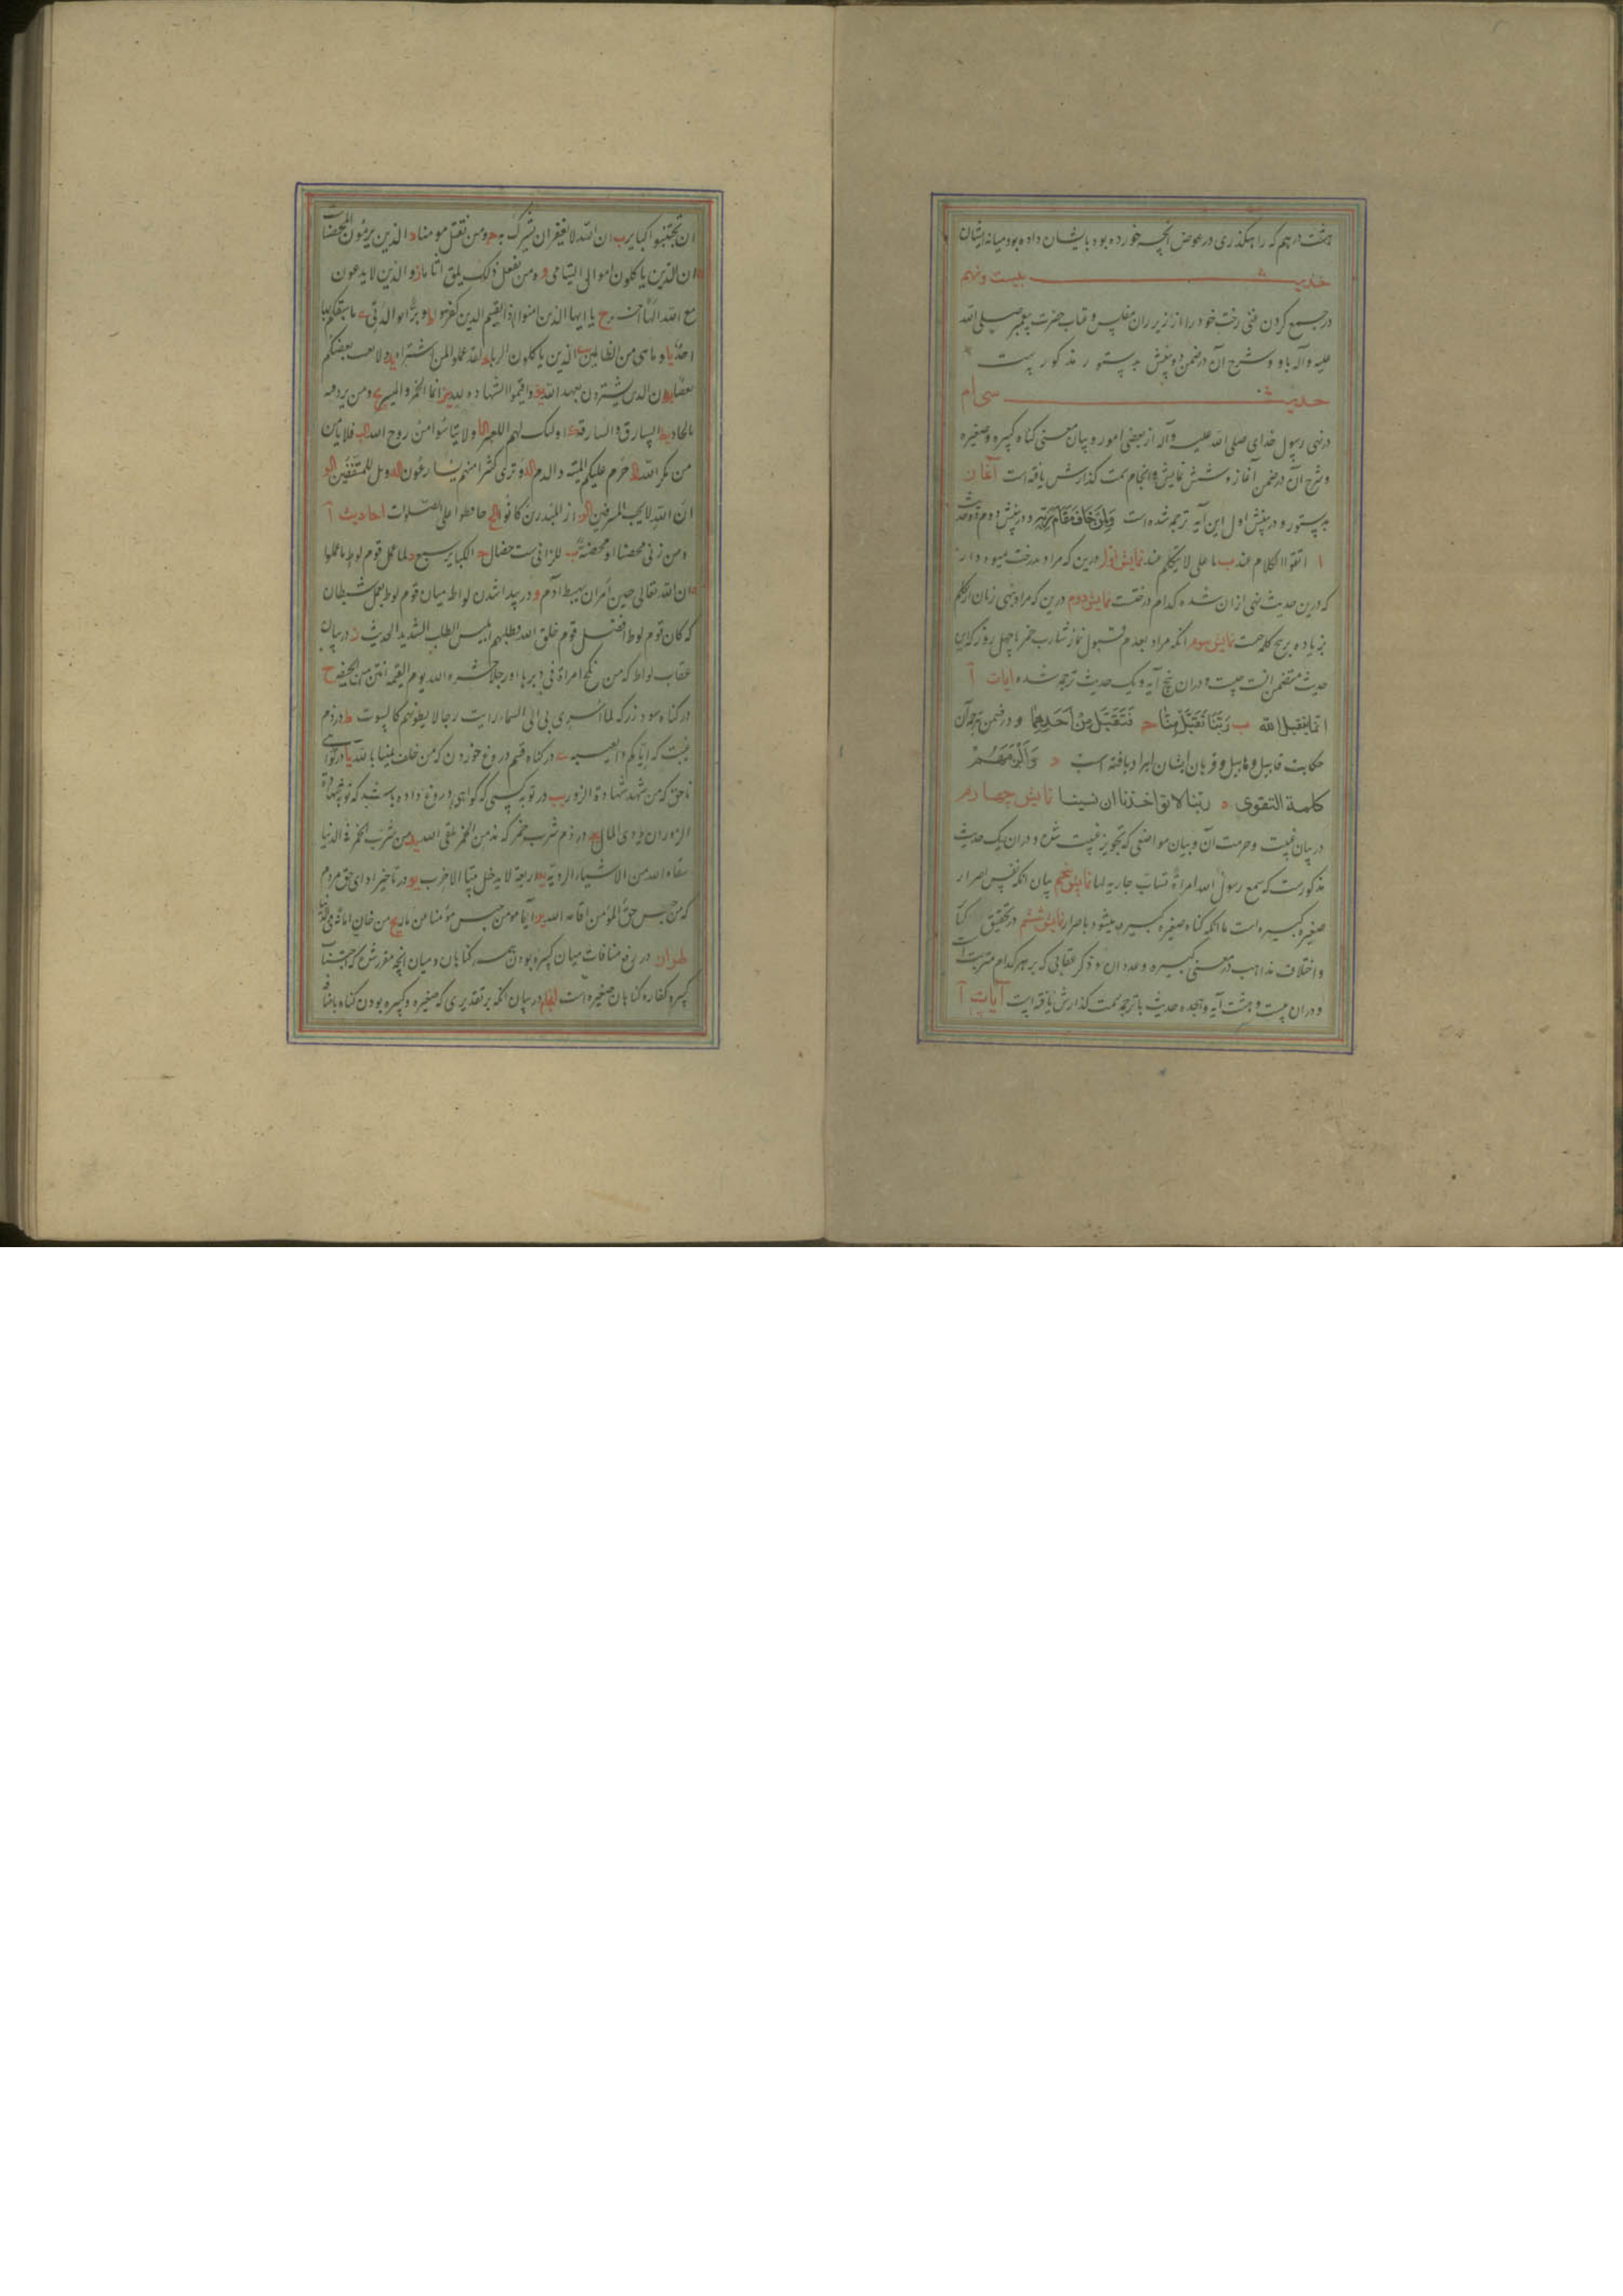 هشت درهم که راهکذری در عوض آنچه خورده بود بایشان داده بود میانه ایشان
حدیث بیست و نهم
در جمع کردن غنی رخت خود را از زیر ران مفلس و عتاب حضرت پیغمبر صلی الله
علیه و آله باو و شرح آن در ضمن دو پیش بدستور مذکورست
حدیث سی ام
در نهی رسول خدای صلی الله علیه و آله از بعضی امور و بیان معنی کناه کبیره و صغیره
و شرح آن در ضمن آغاز و شش نمایش و انجام سمت کذارش یافته است آغاز
بدستور و در پیش اول این آیه ترجمه شده است ولمن خاف مقام ربه و در پیش دوم دو حدیث
ا اتقوا الکلام عند ب ما علی لا تتکلم عند نمایش اول درین که مراد بدرخت میوه دار
که درین حدیث نهی ازان شده کدام درختست نمایش دوم درین که مراد بنهی زنان از تکلم
بزیاده بر پنج کلمه چیست نمایش سوم آنکه مراد بعدم قبول نماز شارب خمر تا چهل روز که این
حدیث متضمن آنست چیست و دران پنج آیه و یک حدیث ترجمه شده ایات آ
انما یتقبل الله ب ربنا تقبل منا ج فتقبل من احدهما و در ضمن ترجمه آن
حکایت قابیل و هابیل و قربان ایشان ایراد یافته است د والزمهم
کلمة التقوی ه ربنا لا تؤاخذنا ان نسینا نمایش چهارم
در بیان غیبت و حرمت آن و بیان مواضعی که تجویز غیبت شده و دران یک حدیث
مذکورست که سمع رسول الله امراة تساب جاریة لها نمایش پنجم بیان آنکه نفس اصرار
صغیره کبیره است یا آنکه کناه صغیره کبیره میشود باصرار نمایش ششم در تحقیق
و اختلاف مذاهب در معنی کبیره و عدد آن و ذکر عقابی که بر هر کدام مترتبست
و دران بیست و هشت آیه و هجده حدیث با ترجمه سمت کذارش یافته است آیات آ
ان تجتنبوا کبایر ب ان الله لا یغفر ان یشرک به ج ومن یقتل مومنا د الذین یرمون المحصنات
ان الذین یاکلون اموال الیتامی و ومن یفعل ذلک یلق اثاما ز والذین لا یدعون
مع الله الها آخر ح یا ایها الذین امنوا اذا لقیتم الذین کفروا ط وبرا بوالدتی ی ما سبقکم بها
احد یا وما هی من الظالمین یب الذین یاکلون الربا یج لقد علموا لمن اشتراه ید ولا یغتب بعضکم
بعضا یه ان الذین یشترون بعهد الله یو واقیموا الشهاده یز انما الخمر والمیسر یح ومن یرد فیه
بالحاد یط السارق والسارقة ک اولئک لهم اللعنة کا ولا تیاسوا من روح الله کب فلا یامن
من مکر الله کج حرم علیکم المیتة والدم کد وتری کثیرا منهم یسارعون که ویل للمطففین کو
ان الله لا یحب المسرفین کز ان المبذرین کانوا کح حافظوا علی الصلوات احادیث آ
ومن زنی محصنا او محصنة ب للزانی ست خصال ج الکبایر سبع د لما عمل قوم لوط ما عملوا
ان الله تعالی حین امر ان یهبط آدم و در پیدا شدن لواط میان قوم لوط بعمل شیطان
که کان قوم لوط افضل قوم خلق الله فطلبهم ابلیس الطلب الشدید الحدیث ز در بیان
عقاب لواط که من نکح امراة فی دبرها او رجلا حشره الله یوم القیمة انتن من الجیفة ح
در کناه سود و زر که لما اسری بی الی السماء رایت رجالا بطونهم کالبیوت ط در ذم
غیبت که ایاکم والغیبه ی در کناه قسم دروغ خوردن که من حلف یمینا بالله یا در کواهی
ناحق که من شهد شهادة الزور یب در توبه کسی که کواهی دروغ داده باشد که توبة شهادة
الزور ان یودی المال یج در ذم شرب خمر که مدمن الخمر یلقی الله ید من شرب الخمر فی الدنیا
سقاه الله من الاشیاء الردیة یه اربعة لا یدخل بیتا الا خرب یو در تاخیر ادای حق مردم
که من حبس حق المؤمن اقامه الله یز ایما مومن حبس مؤمنا عن ماله یح من خان امانة فی الدنیا
طراز در رفع منافات میان کبیره بودن همه کناهان و میان آنچه مقرر شده که اجتناب
کبیره کفاره کناهان صغیره است انجام در بیان آنکه بر تقدیری که صغیره و کبیره بودن کناه باضافه